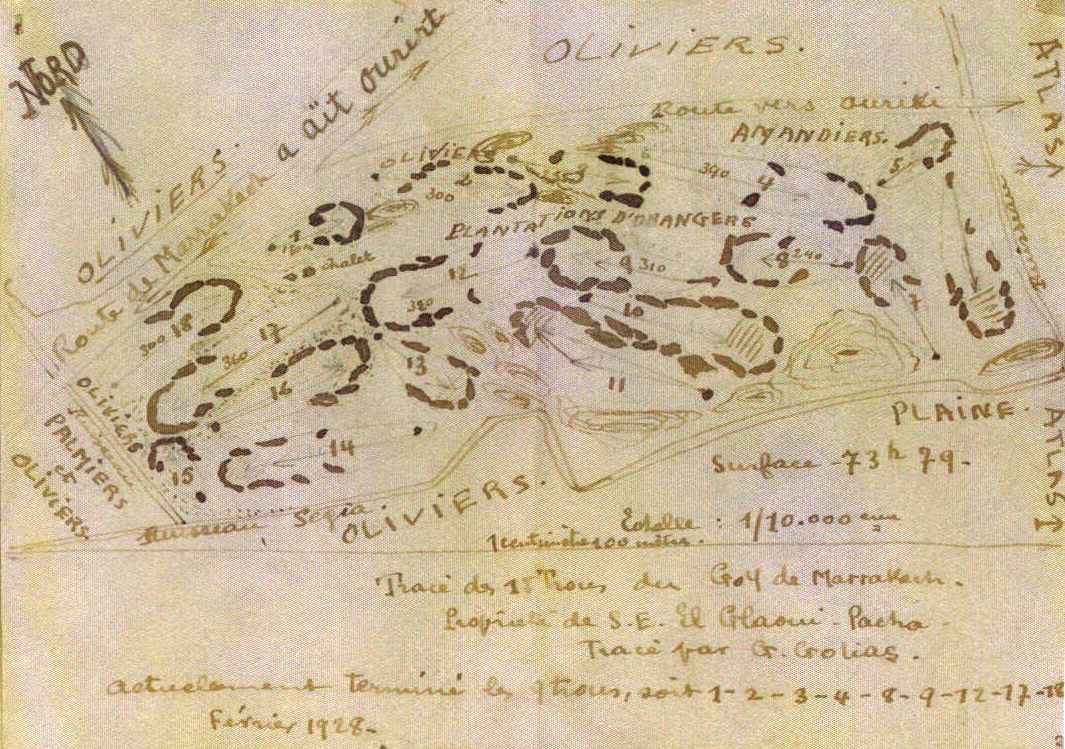 NORD
OLIVIERS.
a aït ourirt
Route de Marrakech
OLIVIERS.
Route vers ouriki
AMANDIERS.
ATLAS
OLIVIERS
PLANTATIONS D'ORANGERS
1
2
300
3
390
4
5
chalet
12
9 310
8 240
7
10
18
300
17
360
16
13
11
14
15
OLIVIERS
PALMIERS
et
OLIVIERS.
Ruisseau Segia.
OLIVIERS.
PLAINE.
ATLAS
Surface - 73 h 79-
Echelle : 1/10.000 eme
1 centimètre 100 mètres.
Tracé des 18 Trous du Golf de Marrakech.
Propriété de S.E. El Glaoui - Pacha
Tracé par G. Golias.
actuelement terminé les 9 trous, soit 1-2-3-4-8-9-12-17-18
Février 1928-